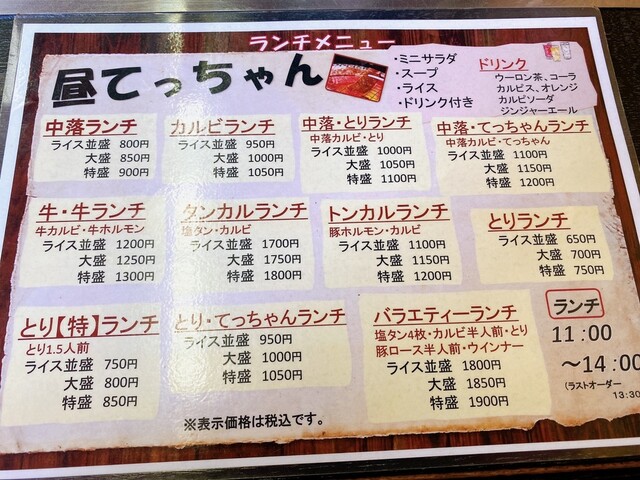 ランチメニュー
昼てっちゃん
・ミニサラダ
・スープ
・ライス
・ドリンク付き
ドリンク
ウーロン茶、コーラ
カルピス、オレンジ
カルピソーダ
ジンジャーエール
中落ランチ
ライス並盛 800円
大盛 850円
特盛 900円
カルビランチ
ライス並盛 950円
大盛 1000円
特盛 1050円
中落・とりランチ
中落カルビ・とり
ライス並盛 1000円
大盛 1050円
特盛 1100円
中落・てっちゃんランチ
中落カルビ・てっちゃん
ライス並盛 1100円
大盛 1150円
特盛 1200円
牛・牛ランチ
牛カルビ・牛ホルモン
ライス並盛 1200円
大盛 1250円
特盛 1300円
タンカルランチ
塩タン・カルビ
ライス並盛 1700円
大盛 1750円
特盛 1800円
トンカルランチ
豚ホルモン・カルビ
ライス並盛 1100円
大盛 1150円
特盛 1200円
とりランチ
ライス並盛 650円
大盛 700円
特盛 750円
とり【特】ランチ
とり1.5人前
ライス並盛 750円
大盛 800円
特盛 850円
とり・てっちゃんランチ
ライス並盛 950円
大盛 1000円
特盛 1050円
バラエティーランチ
塩タン4枚・カルビ半人前・とり
豚ロース半人前・ウインナー
ライス並盛 1800円
大盛 1850円
特盛 1900円
ランチ
11:00
～14:00
(ラストオーダー
13:30
※表示価格は税込です。